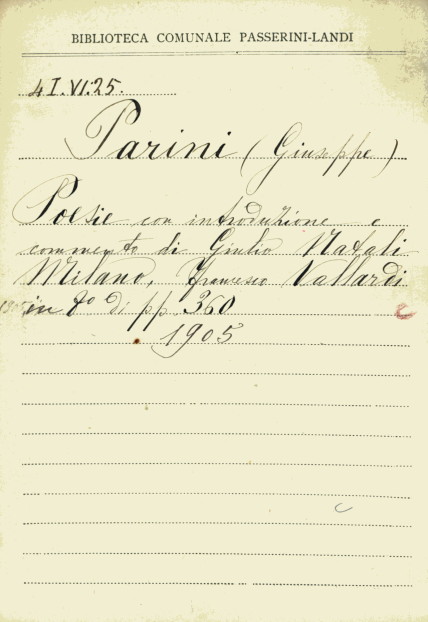 BIBLIOTECA COMUNALE PASSERINI-LANDI
4 I. VI. 25.
Parini (Giuseppe)
Poesie con introduzione e
commento di Giulio Natali
Milano, Francesco Vallardi
in 8º di pp. 360
1905